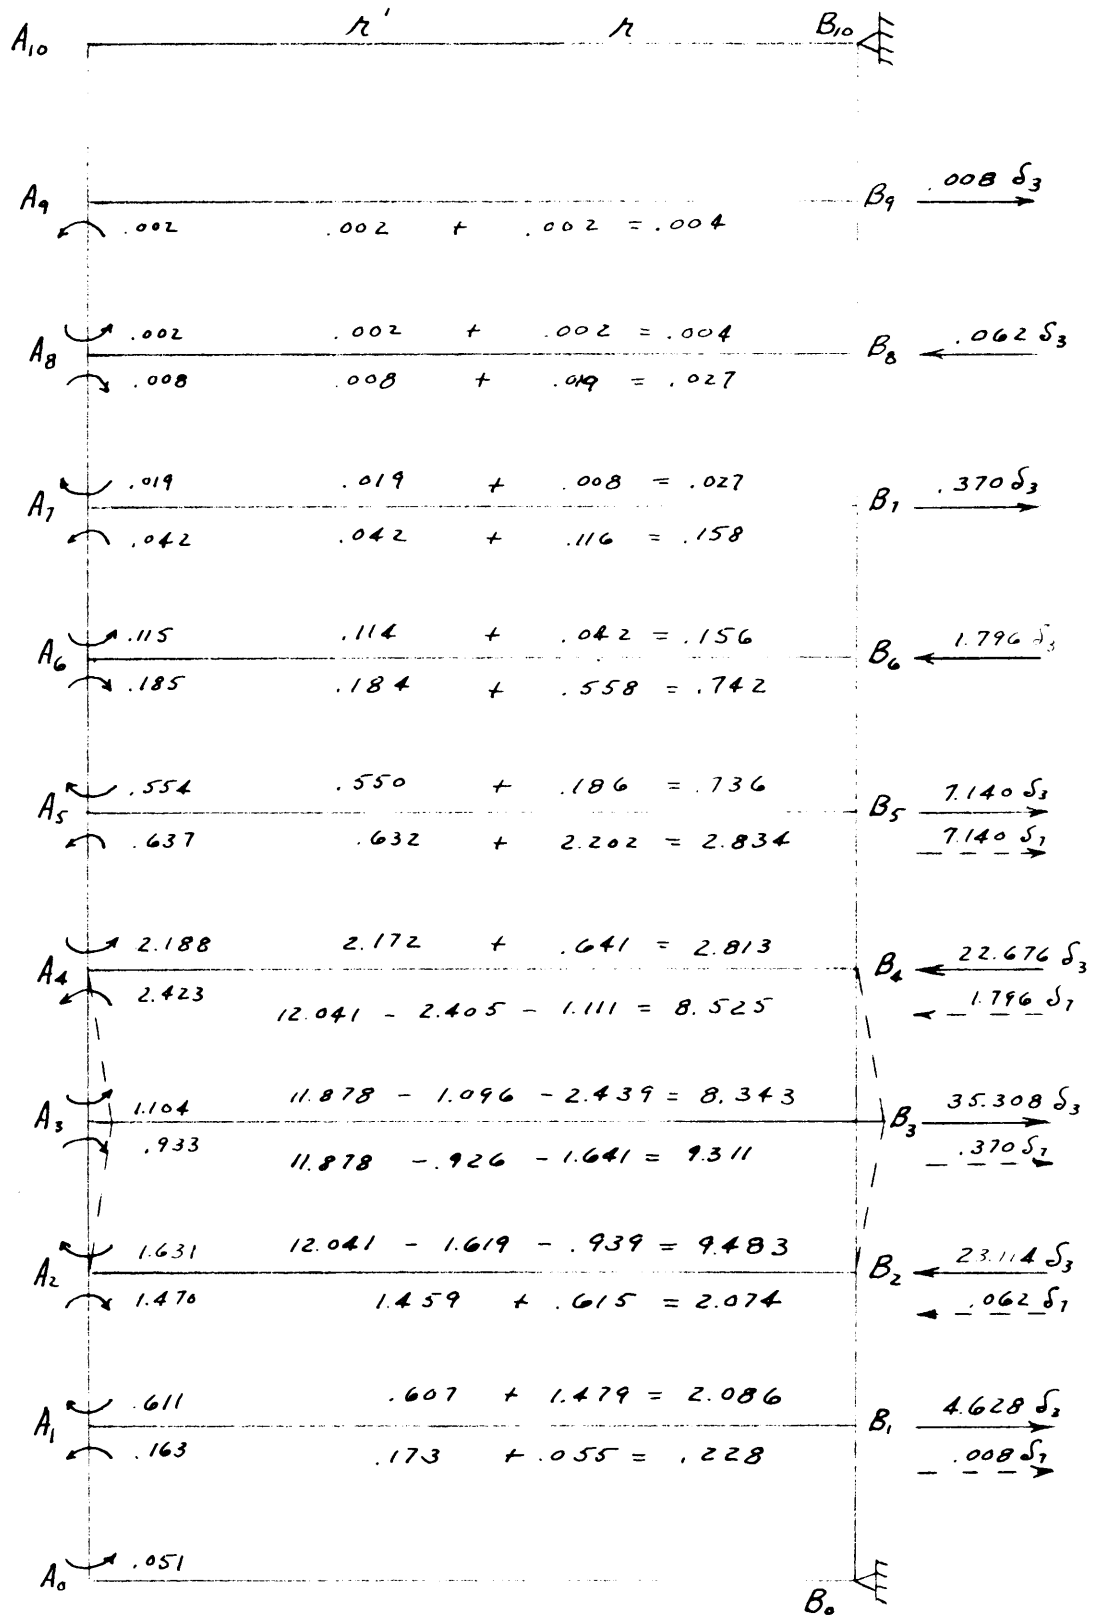 A₁₀ r' r B₁₀
A₉ B₉ .008 δ₃
.002 .002 + .002 = .004
.002 .002 + .002 = .004
A₈ B₈ .062 δ₃
.008 .008 + .019 = .027
.019 .019 + .008 = .027
A₇ B₇ .370 δ₃
.042 .042 + .116 = .158
.115 .114 + .042 = .156
A₆ B₆ 1.796 δ₃
.185 .184 + .558 = .742
.554 .550 + .186 = .736
A₅ B₅ 7.140 δ₃
.637 .632 + 2.202 = 2.834 7.140 δ₇
2.188 2.172 + .641 = 2.813
A₄ B₄ 22.676 δ₃
2.423 12.041 - 2.405 - 1.111 = 8.525 1.796 δ₇
1.104 11.878 - 1.096 - 2.439 = 8.343
A₃ B₃ 35.308 δ₃
.933 11.878 - .926 - 1.641 = 9.311 .370 δ₇
1.631 12.041 - 1.619 - .939 = 9.483
A₂ B₂ 23.114 δ₃
1.470 1.459 + .615 = 2.074 .062 δ₇
.611 .607 + 1.479 = 2.086
A₁ B₁ 4.628 δ₃
.163 .173 + .055 = .228 .008 δ₇
.051
A₀ B₀